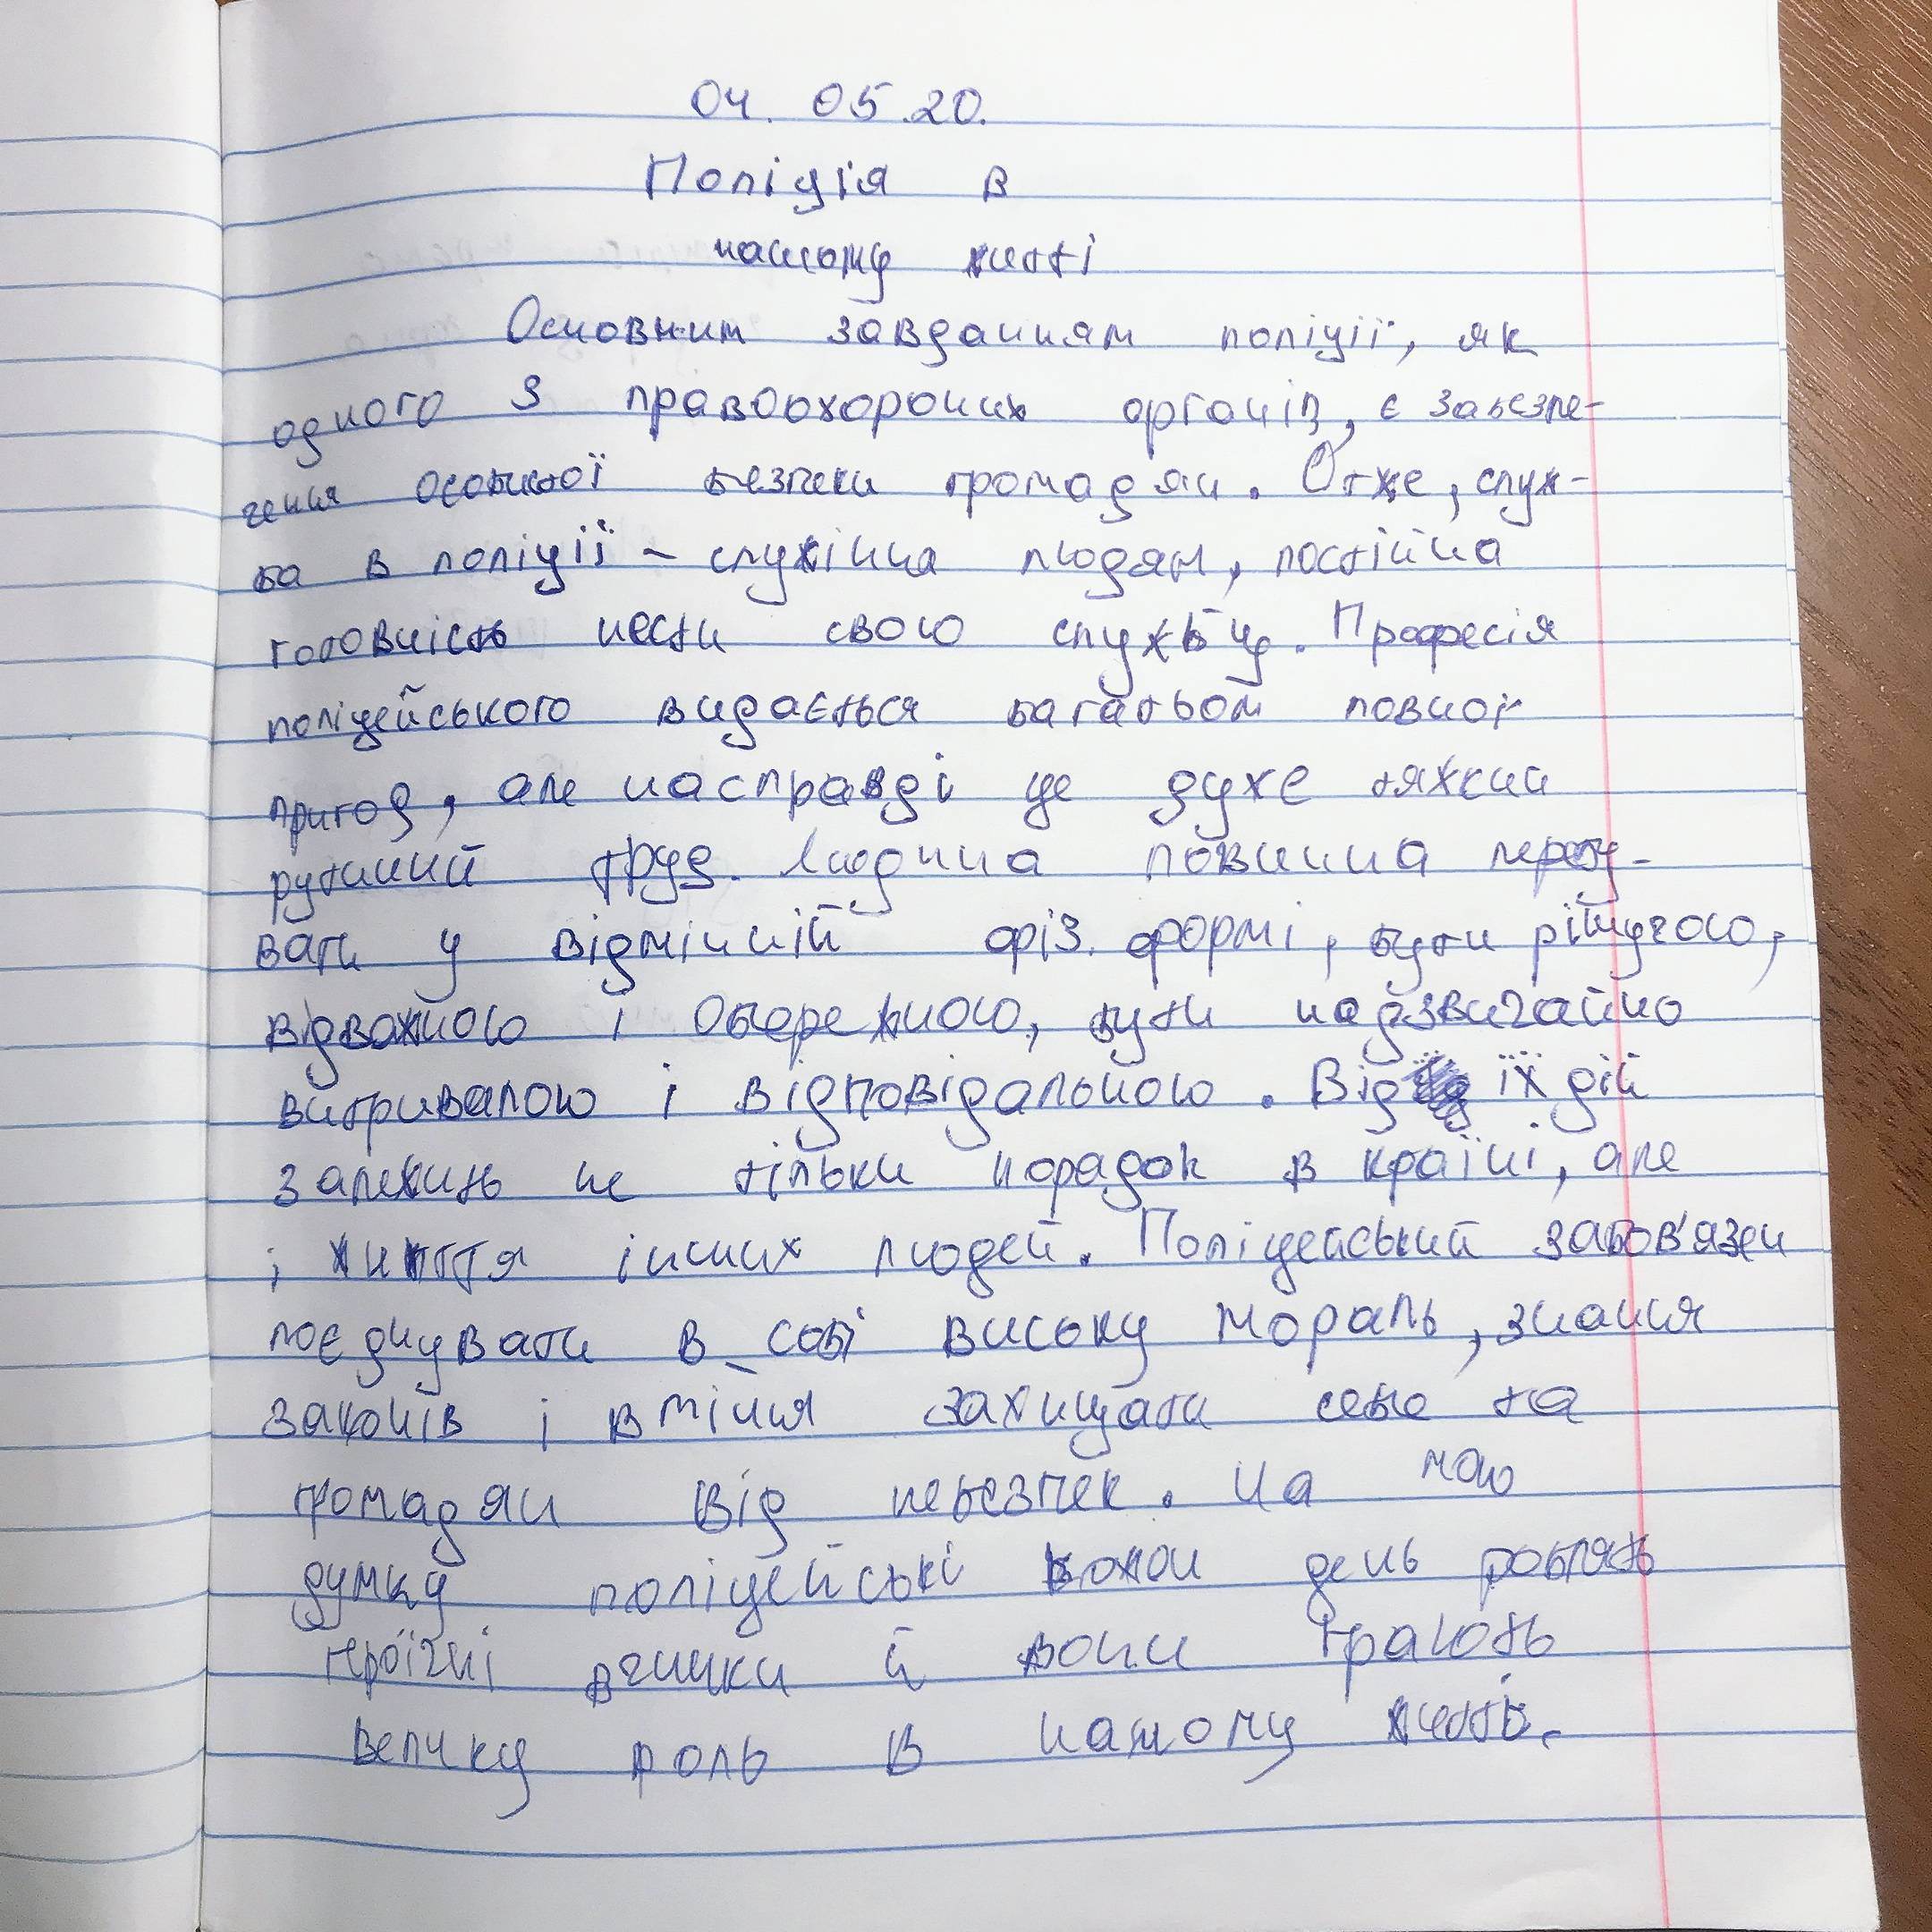 04. 05.20.
Поліція в
нашому житті
Основним завданням поліції, як
одного з правоохороних органів, є забезпе-
чення особистої безпеки громадян. Отже, служ-
ба в поліції – служіння людям, постійна
готовність нести свою службу. Професія
поліцейського видається багатьом повної
пригод, але насправді це дуже тяжкий
рутинний труд. Людина повинна перебу-
вати у відмінній фіз. формі, бути рішучою,
відважною і обережною, бути надзвичайно
витривалою і відповідальною. Від їх дій
залежить не тільки порядок в країні, але
і життя інших людей. Поліцейський забов'язен
поєднувати в собі високу мораль, знання
законів і вміння захищати себе та
громадян від небезпек. На мою
думку поліцейські кожен день роблять
героїчні вчинки й вони грають
велику роль в нашому житті.